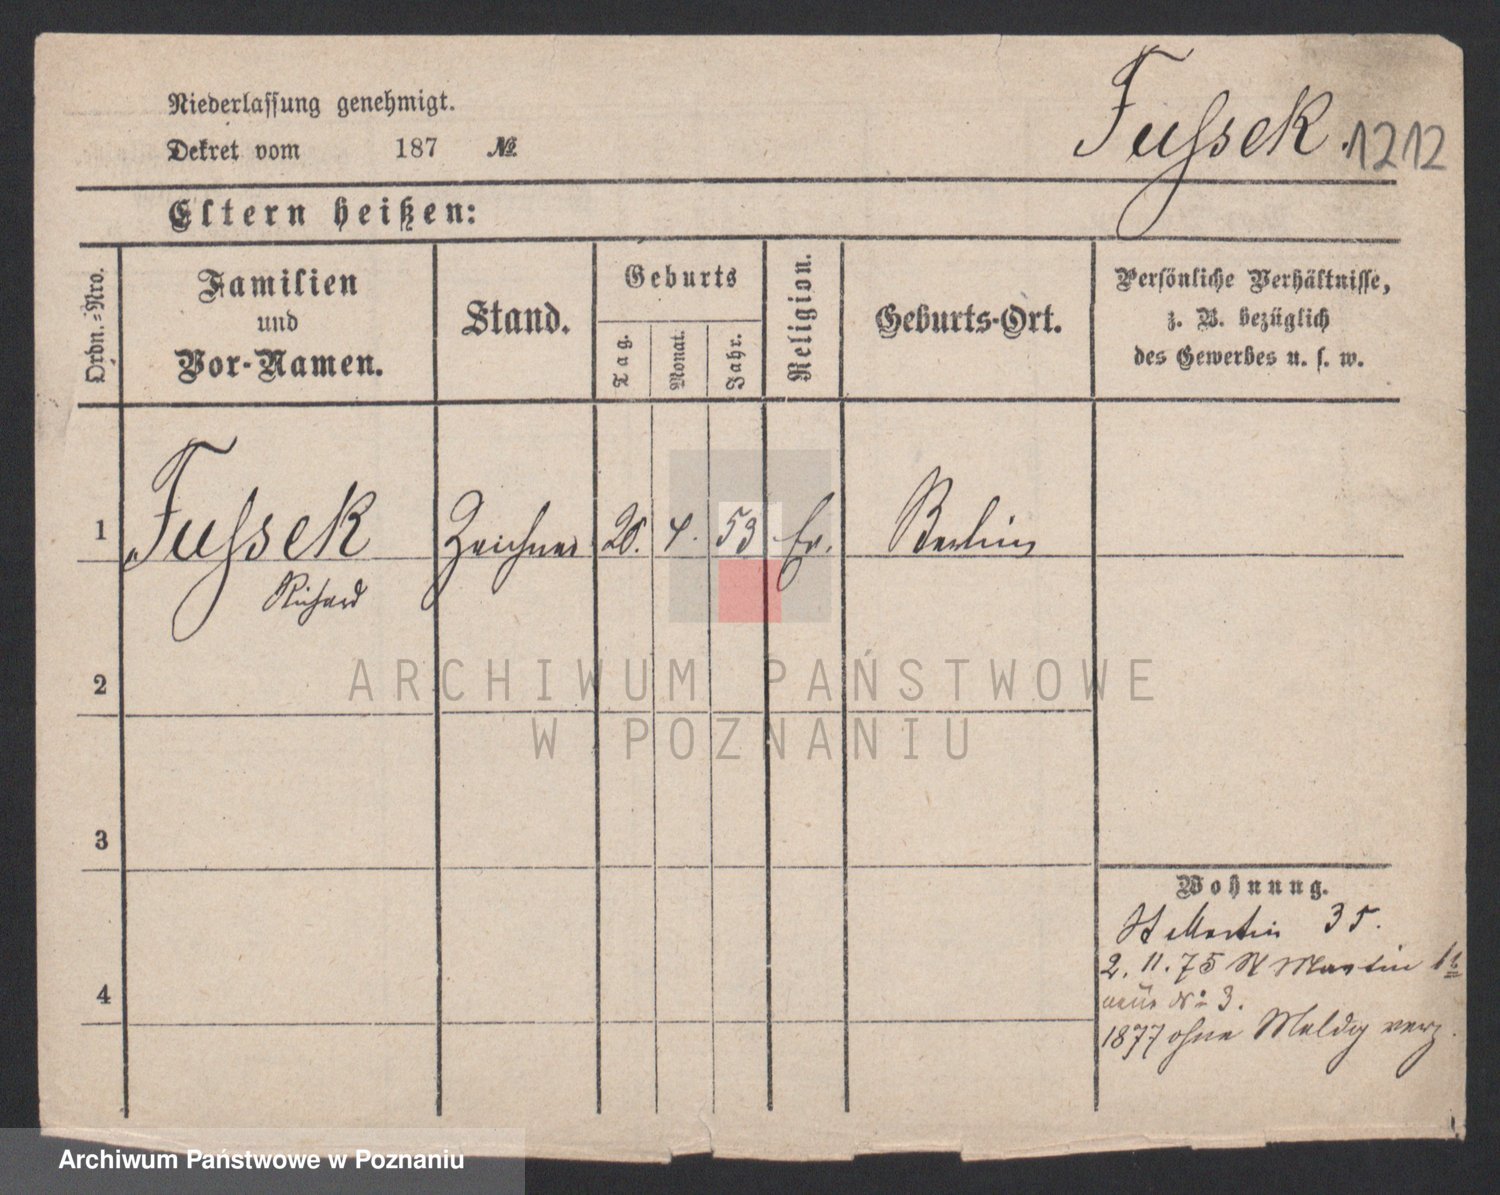 Niederlassung genehmigt.
Dekret vom 187 №
Fussek. 1212
Eltern heißen:
Ordn.-Nro.
Familien
und
Vor-Namen.
Stand.
Geburts
Tag.
Monat.
Jahr.
Religion.
Geburts-Ort.
Persönliche Verhältnisse,
z. B. bezüglich
des Gewerbes u. s. w.
1 Fussek Zeichner 4. 53 Ev. Berlin
Richard
2
3
Wohnung.
St Martin 35.
2. 11. 75 St Martin
neue No 3.
4
1877 ohne Meldg verz.
ARCHIWUM PAŃSTWOWE
W POZNANIU
Archiwum Państwowe w Poznaniu